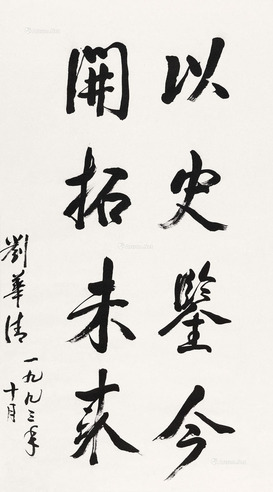 以史鑒今
開拓未来
劉華清
一九九三年
十月